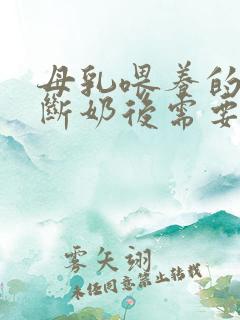 母乳喂养的
斷奶後需要
雾矢翊
未经同意禁止转载